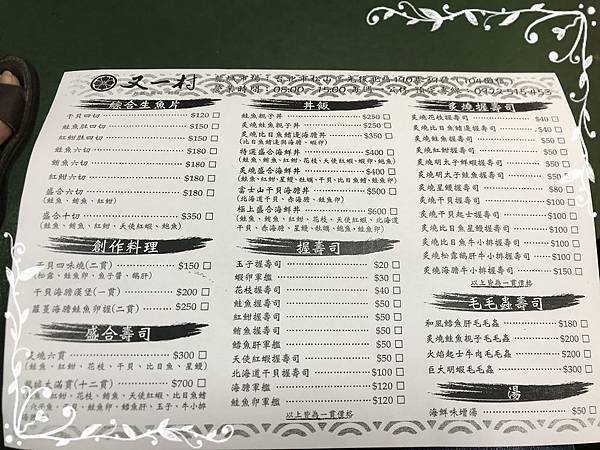 又一村
營業時間:08:00 - 15:00
0922-515-453
綜合生魚片
干貝四切 $120
鮭魚肚四切 $150
紅魽肚四切 $150
鮭魚六切 $180
鮪魚六切 $180
紅魽六切 $180
盛合六切 $180
(鮭魚、鮪魚、紅魽)
盛合十切 $350
(鮭魚、鮪魚、紅魽、天使紅蝦、鮑魚)
創作料理
干貝四味燒(二貫) $150
(松露、鮭魚卵、魚子醬、鵝肝)
干貝海膽漢堡(一貫) $200
蘿蔓海膽鮭魚卵握(二貫) $250
盛合壽司
炙燒六貫 $300
(鮭魚、紅魽、花枝、干貝、比目魚、星鰻)
大滿貫(十二貫) $700
鮭魚、紅魽、花枝、鮪魚、天使紅蝦、比目魚鰭
干貝、鮭魚卵、鱈魚肝、玉子、牛小排
丼飯
鮭魚親子丼 $250
炙燒鮭魚親子丼 $250
炙燒比目魚鰭邊海膽丼 $350
(比目魚鰭邊與海膽、蝦卵)
特選盛合海鮮丼 $400
(鮭魚、鮪魚、紅魽、花枝、天使紅蝦、蝦卵、鮑魚)
炙燒盛合海鮮丼 $400
(鮭魚、紅魽、星鰻、牡蠣、干貝、比目魚鰭、鮭魚卵)
富士山干貝海膽丼 $500
(北海道干貝、赤海膽、鮭魚卵)
極上盛合海鮮丼 $600
(鮭魚、鮪魚、紅魽、花枝、天使紅蝦、北海道
干貝、赤海膽、星鰻、牡蠣、鮑魚、鮭魚卵)
握壽司
玉子握壽司 $20
蝦卵軍艦 $30
花枝握壽司 $40
鮭魚握壽司 $50
紅魽握壽司 $50
鮪魚握壽司 $50
鱈魚肝軍艦 $50
天使紅蝦握壽司 $80
北海道干貝握壽司 $80
海膽軍艦 $120
鮭魚卵軍艦 $120
以上皆為一貫價格
炙燒握壽司
炙燒花枝握壽司 $40
炙燒比目魚鰭邊握壽司 $40
炙燒鮭魚握壽司 $50
炙燒紅魽握壽司 $50
炙燒明太子鮮蝦握壽司 $50
炙燒明太子鮭魚握壽司 $50
炙燒星鰻握壽司 $80
炙燒干貝握壽司 $80
炙燒干貝起士握壽司 $100
炙燒比目魚星鰻握壽司 $100
炙燒比目魚牛小排握壽司 $100
炙燒松露鵝肝牛小排握壽司 $100
炙燒海膽牛小排握壽司 $150
以上皆為一貫價格
毛毛蟲壽司
和風鱈魚肝毛毛蟲 $180
炙燒鮭魚親子毛毛蟲 $200
火焰起士牛肉毛毛蟲 $200
巨大明蝦毛毛蟲 $300
湯
海鮮味增湯 $50